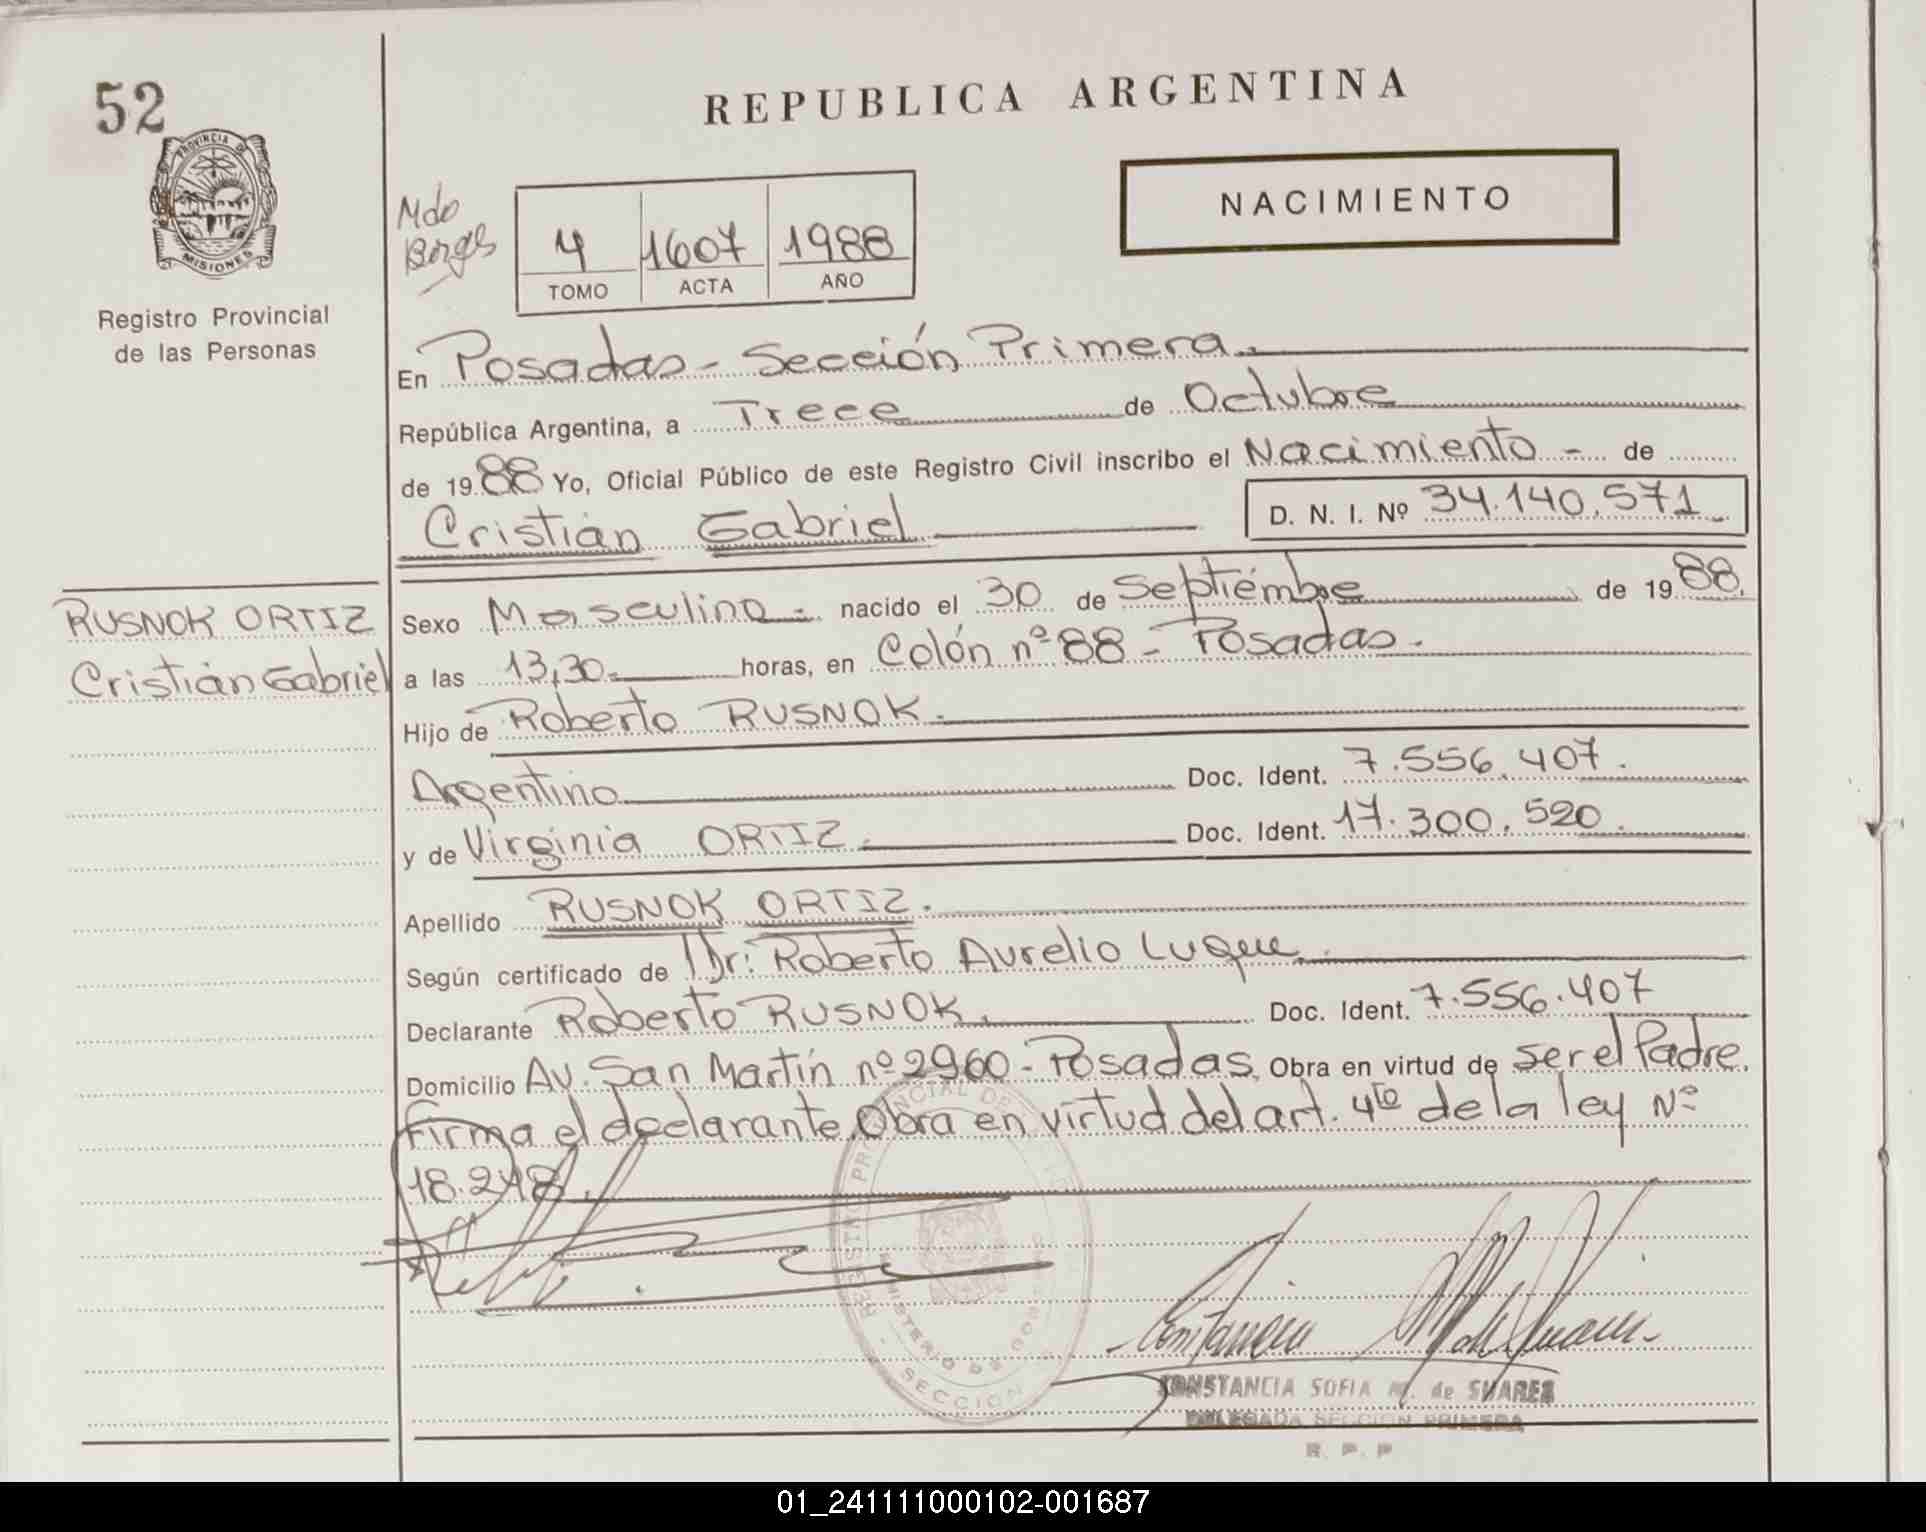 52
PROVINCIA DE
MISIONES
Registro Provincial
de las Personas
REPUBLICA ARGENTINA
NACIMIENTO
Mdo
4 1607 1988
TOMO ACTA AÑO
En Posadas - Sección Primera.
República Argentina, a Trece de Octubre
de 1988 Yo, Oficial Público de este Registro Civil inscribo el Nacimiento - de
Cristian Gabriel D. N. I. Nº 34.140.571
RUSNOK ORTIZ
Cristian Gabriel
Sexo Masculino - nacido el 30 de Septiembre de 1988.
a las 13,30 horas, en Colón nº 88 - Posadas.
Hijo de Roberto RUSNOK.
Argentino Doc. Ident. 7.556.407.
y de Virginia ORTIZ. Doc. Ident. 17.300.520.
Apellido RUSNOK ORTIZ.
Según certificado de Dr: Roberto Aurelio Luque.
Declarante Roberto RUSNOK. Doc. Ident. 7.556.407
Domicilio Av. San Martín nº 2960 - Posadas. Obra en virtud de ser el Padre.
Firma el declarante. Obra en virtud del art. 4to de la ley Nº
18.248.
REGISTRO PROVINCIAL DE
MINISTERIO DE GOB
SECCION
CONSTANCIA SOFIA M. de SUARES
DELEGADA SECCION PRIMERA
R. P. P
01_241111000102-001687